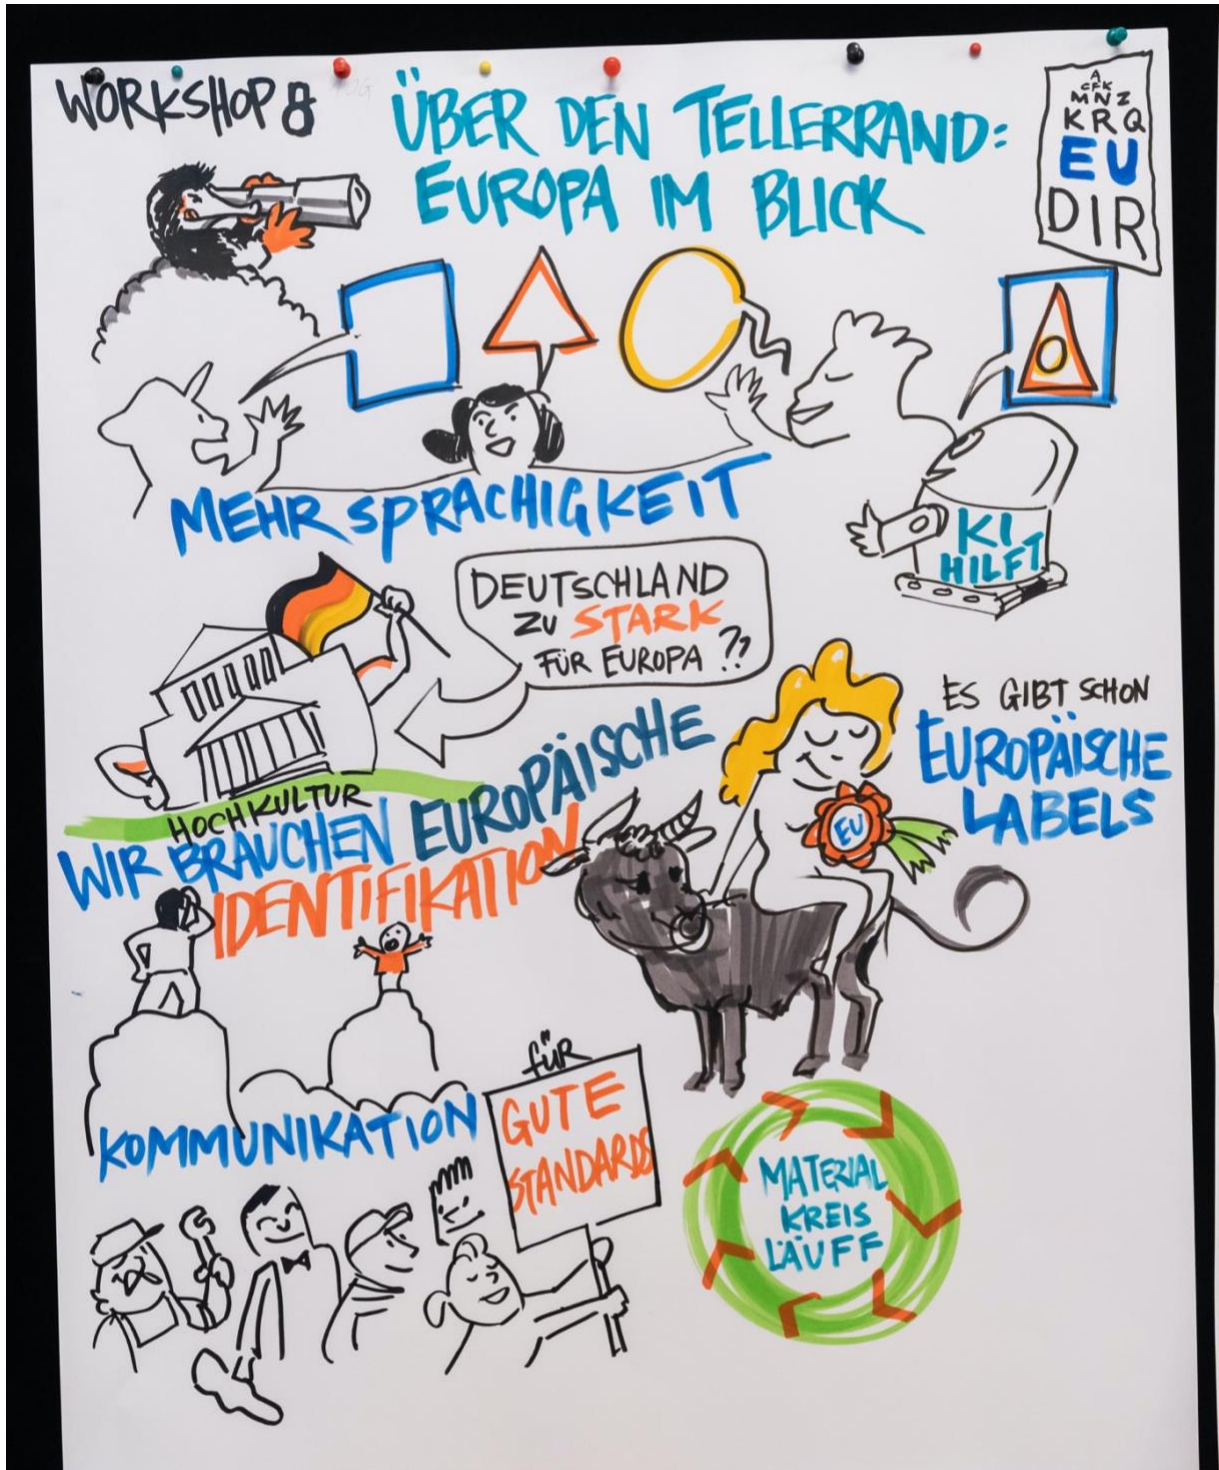 WORKSHOP 8
ÜBER DEN TELLERRAND:
EUROPA IM BLICK
A
CFK
MNZ
KRQ
EU
DIR
MEHRSPRACHIGKEIT
KI
HILFT
DEUTSCHLAND
ZU STARK
FÜR EUROPA ??
HOCHKULTUR
WIR BRAUCHEN EUROPÄISCHE
IDENTIFIKATION
ES GIBT SCHON
EUROPÄISCHE
LABELS
EU
KOMMUNIKATION
FÜR
GUTE
STANDARDS
MATERIAL
KREIS
LÄUFF